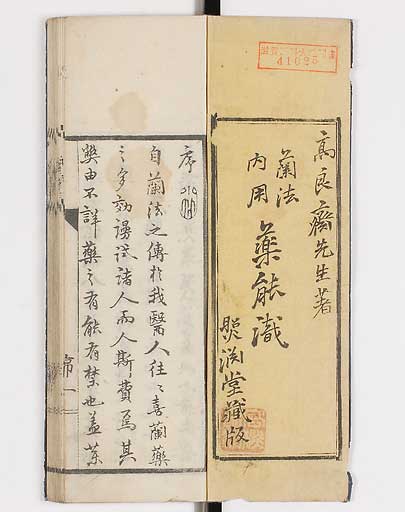 高良齋先生著
蘭法
内用
藥能識
熙渕堂藏版
41025
序
自蘭法之傳於我醫人往〻喜蘭藥
之多効謾試諸人而人斯費焉其
獘由不詳藥之有能有禁也蓋藥
序一